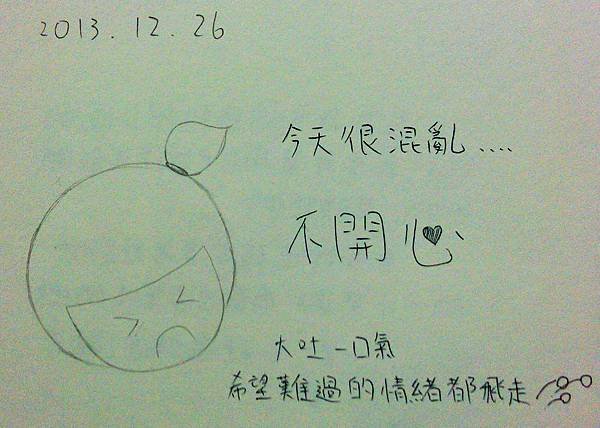 2013.12.26
今天很混亂....
不開心
大吐一口氣
希望難過的情緒都飛走